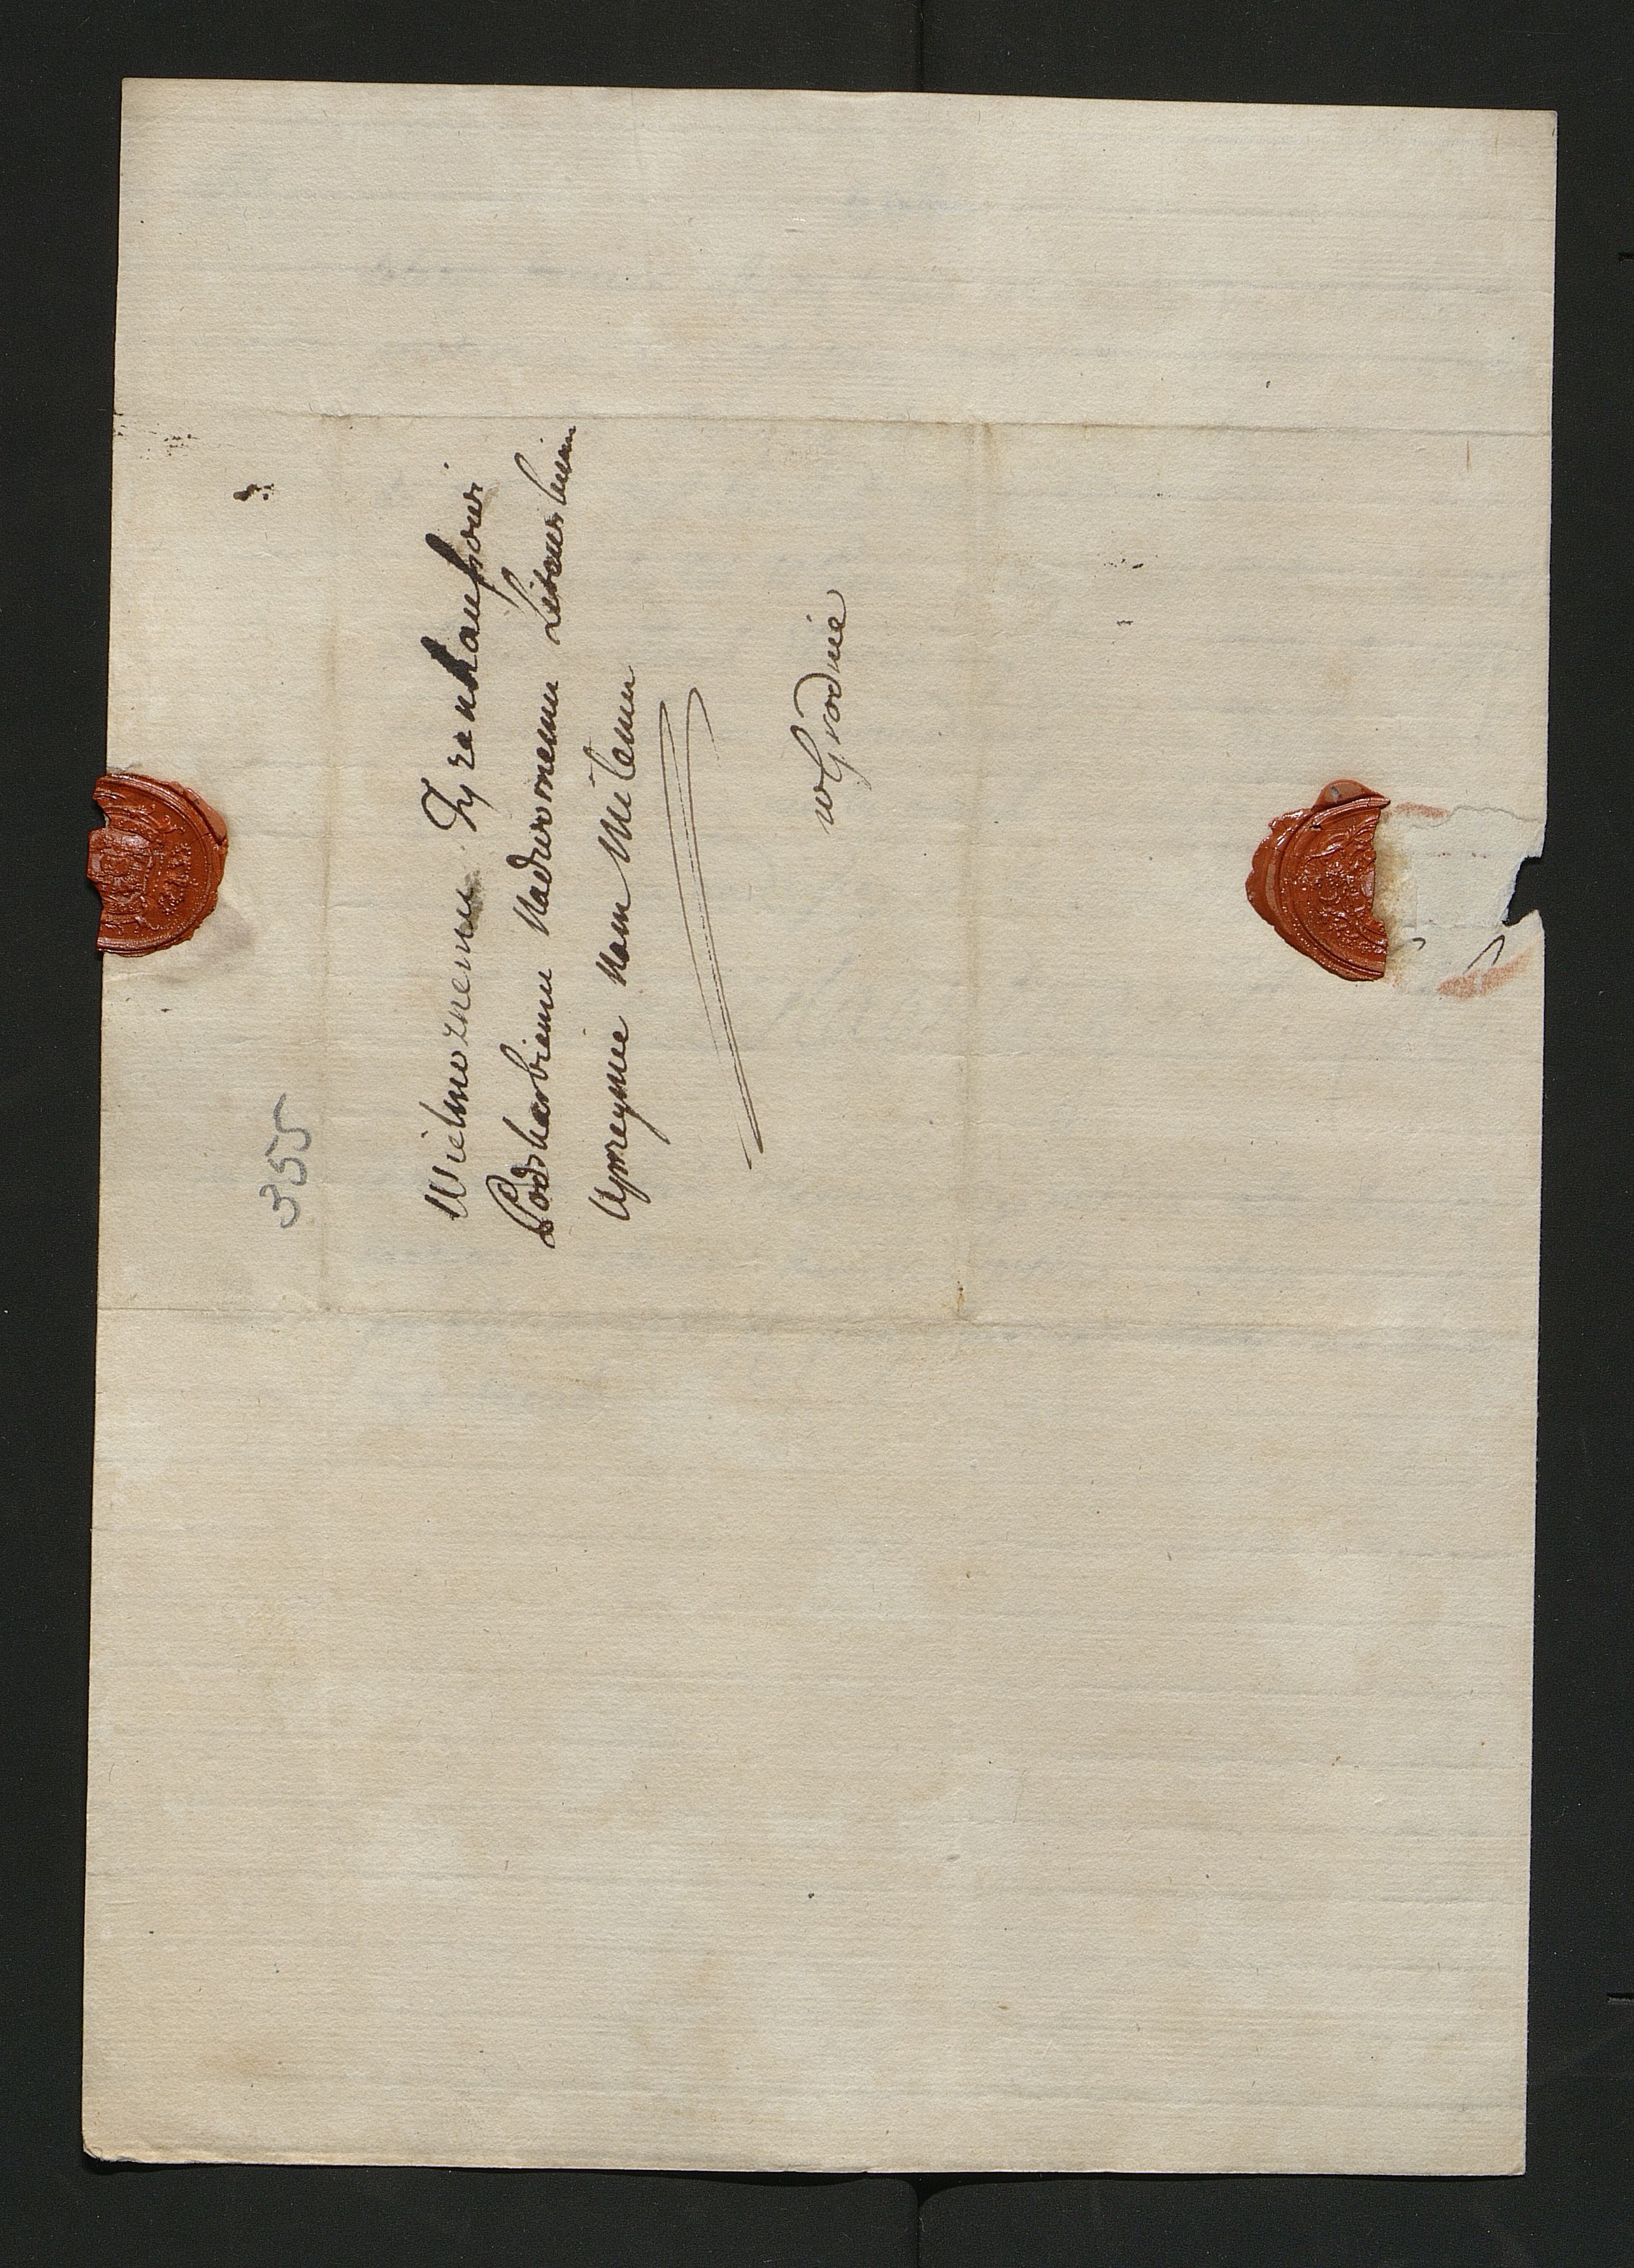 355
Wielmoznemu Tyzenhauzowi
Podskarbiemu Nadwornemu Litewskiem
Uprzeymie Nam Miłemu
w Grodnie